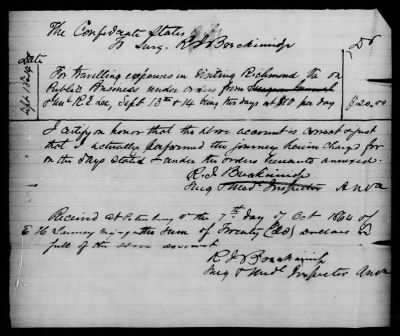 The Confederate States
To Surg. R J Breckinridge
Dr
Date
Sept 13 & 14
For travelling expenses in visiting Richmond Va on
Public Business under orders from Surgeon General
Genl R E Lee, Sept 13th & 14 being two days at $10 per day
$20.00
I certify on honor that the above account is correct & just
that I actually performed the journey herein charged for
on the days stated & under the orders hereunto annexed.
R. J. Breckinridge
Surg & Medl Inspector A N Va
Received at Petersburg Va the 7th day of Oct 1864 of
E H the sum of Twenty (20) Dollars in
full of the above account
R J Breckinridge
Surg & Medl Inspector A N Va